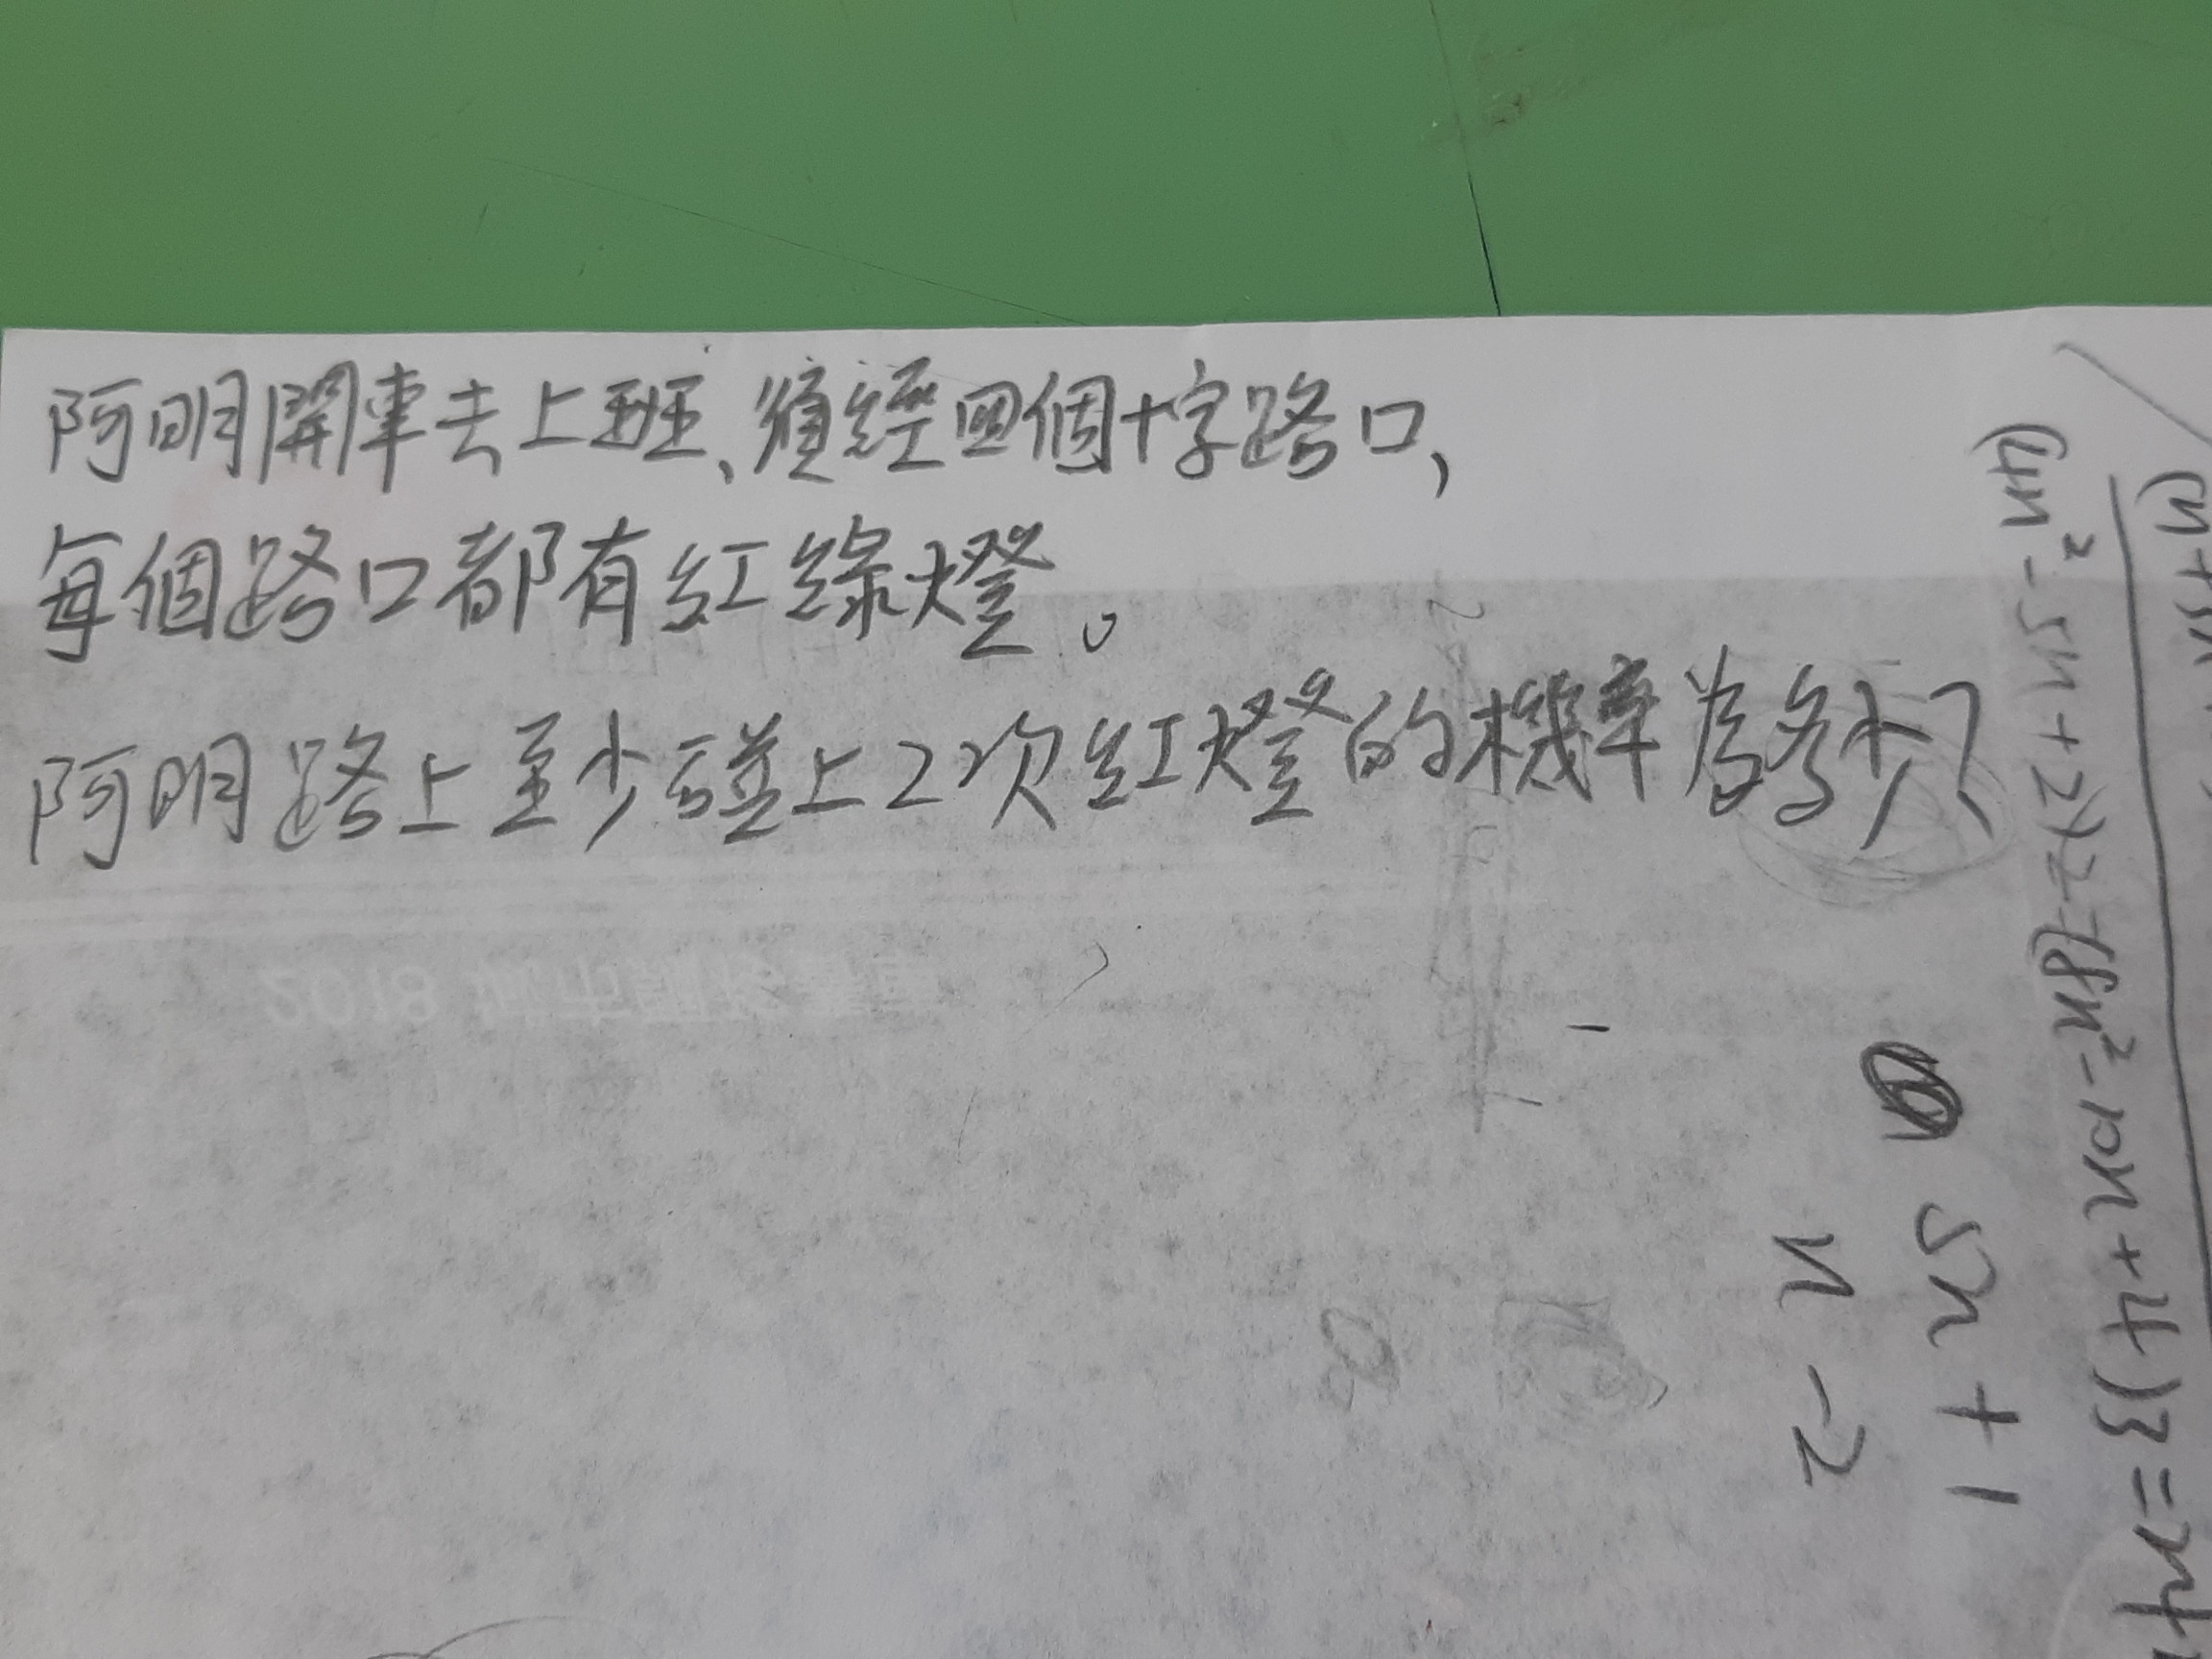 阿明開車去上班、須經四個十字路口,
每個路口都有紅綠燈。
阿明路上至少碰上2次紅燈的機率為多少?
2018
n - 2
5n + 1
(4n² - 5n + 2)